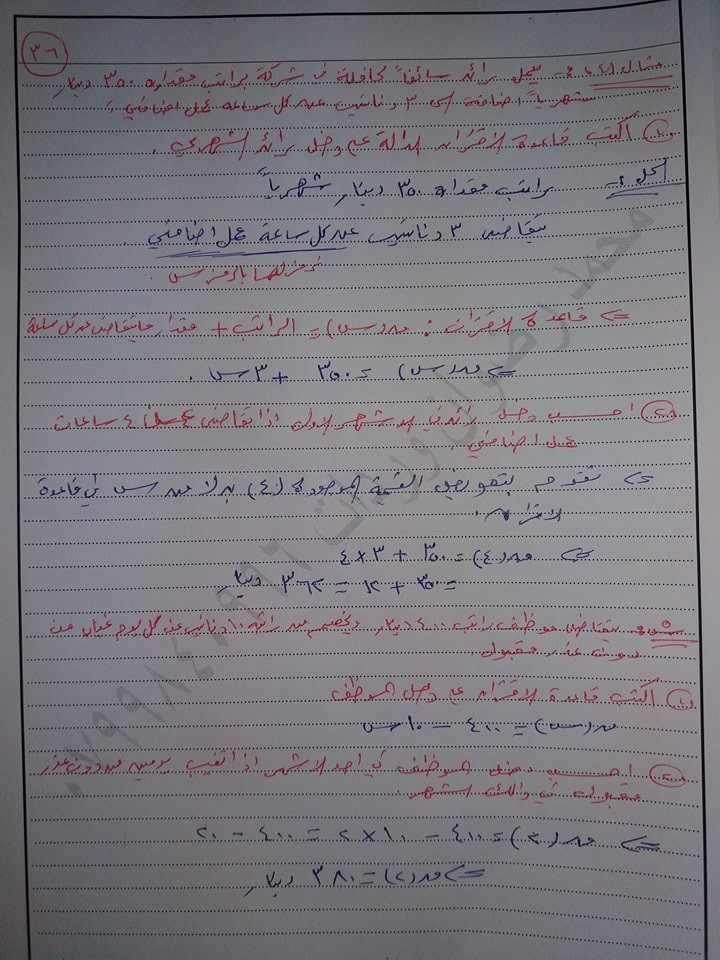 ٣٦
مثال (٢) :- يعمل رائد سائقاً لحافلة في شركة براتب مقداره ٣٥٠ دينار
شهرياً اضافة الى ٣ دنانير عن كل ساعة عمل اضافي ؛
(١) اكتب قاعدة الاقتران الدالة على دخل رائد الشهري .
الحل :- براتب مقداره ٣٥٠ دينار شهرياً
يتقاضى ٣ دنانير عن كل ساعة عمل اضافي
نرمز لها بالرمز س .
<= قاعدة الاقتران : ق(س) = الراتب + مقدار ما يتقاضى عن كل ساعة
<= ق(س) = ٣٥٠ + ٣س .
(٢) احسب دخل رائد في الشهر الاول اذا تقاضى ٤ ساعات
عمل اضافي .
<= نقوم بتعويض القيمة الموجودة (٤) بدلا من س في قاعدة
الاقتران .
<= ق(٤) = ٣٥٠ + ٣×٤
= ٣٥٠ + ١٢ = ٣٦٢ دينار
يتقاضى موظف راتب ٤٠٠ دينار ويخصم من راتبه ١٠ دنانير عن كل يوم غياب من
دون عذر مقبول .
(١) اكتب قاعدة الاقتران على دخل الموظف
ق(س) = ٤٠٠ - ١٠س
(٢) احسب دخل الموظف في احد الاشهر اذا تغيب يومين من دون عذر
مقبول في ذلك الشهر
<= ق(٢) = ٤٠٠ - ١٠×٢ = ٤٠٠ - ٢٠
<= ق(٢) = ٣٨٠ دينار
محمد رضوان وريدات ٠٧٩٩٨٤